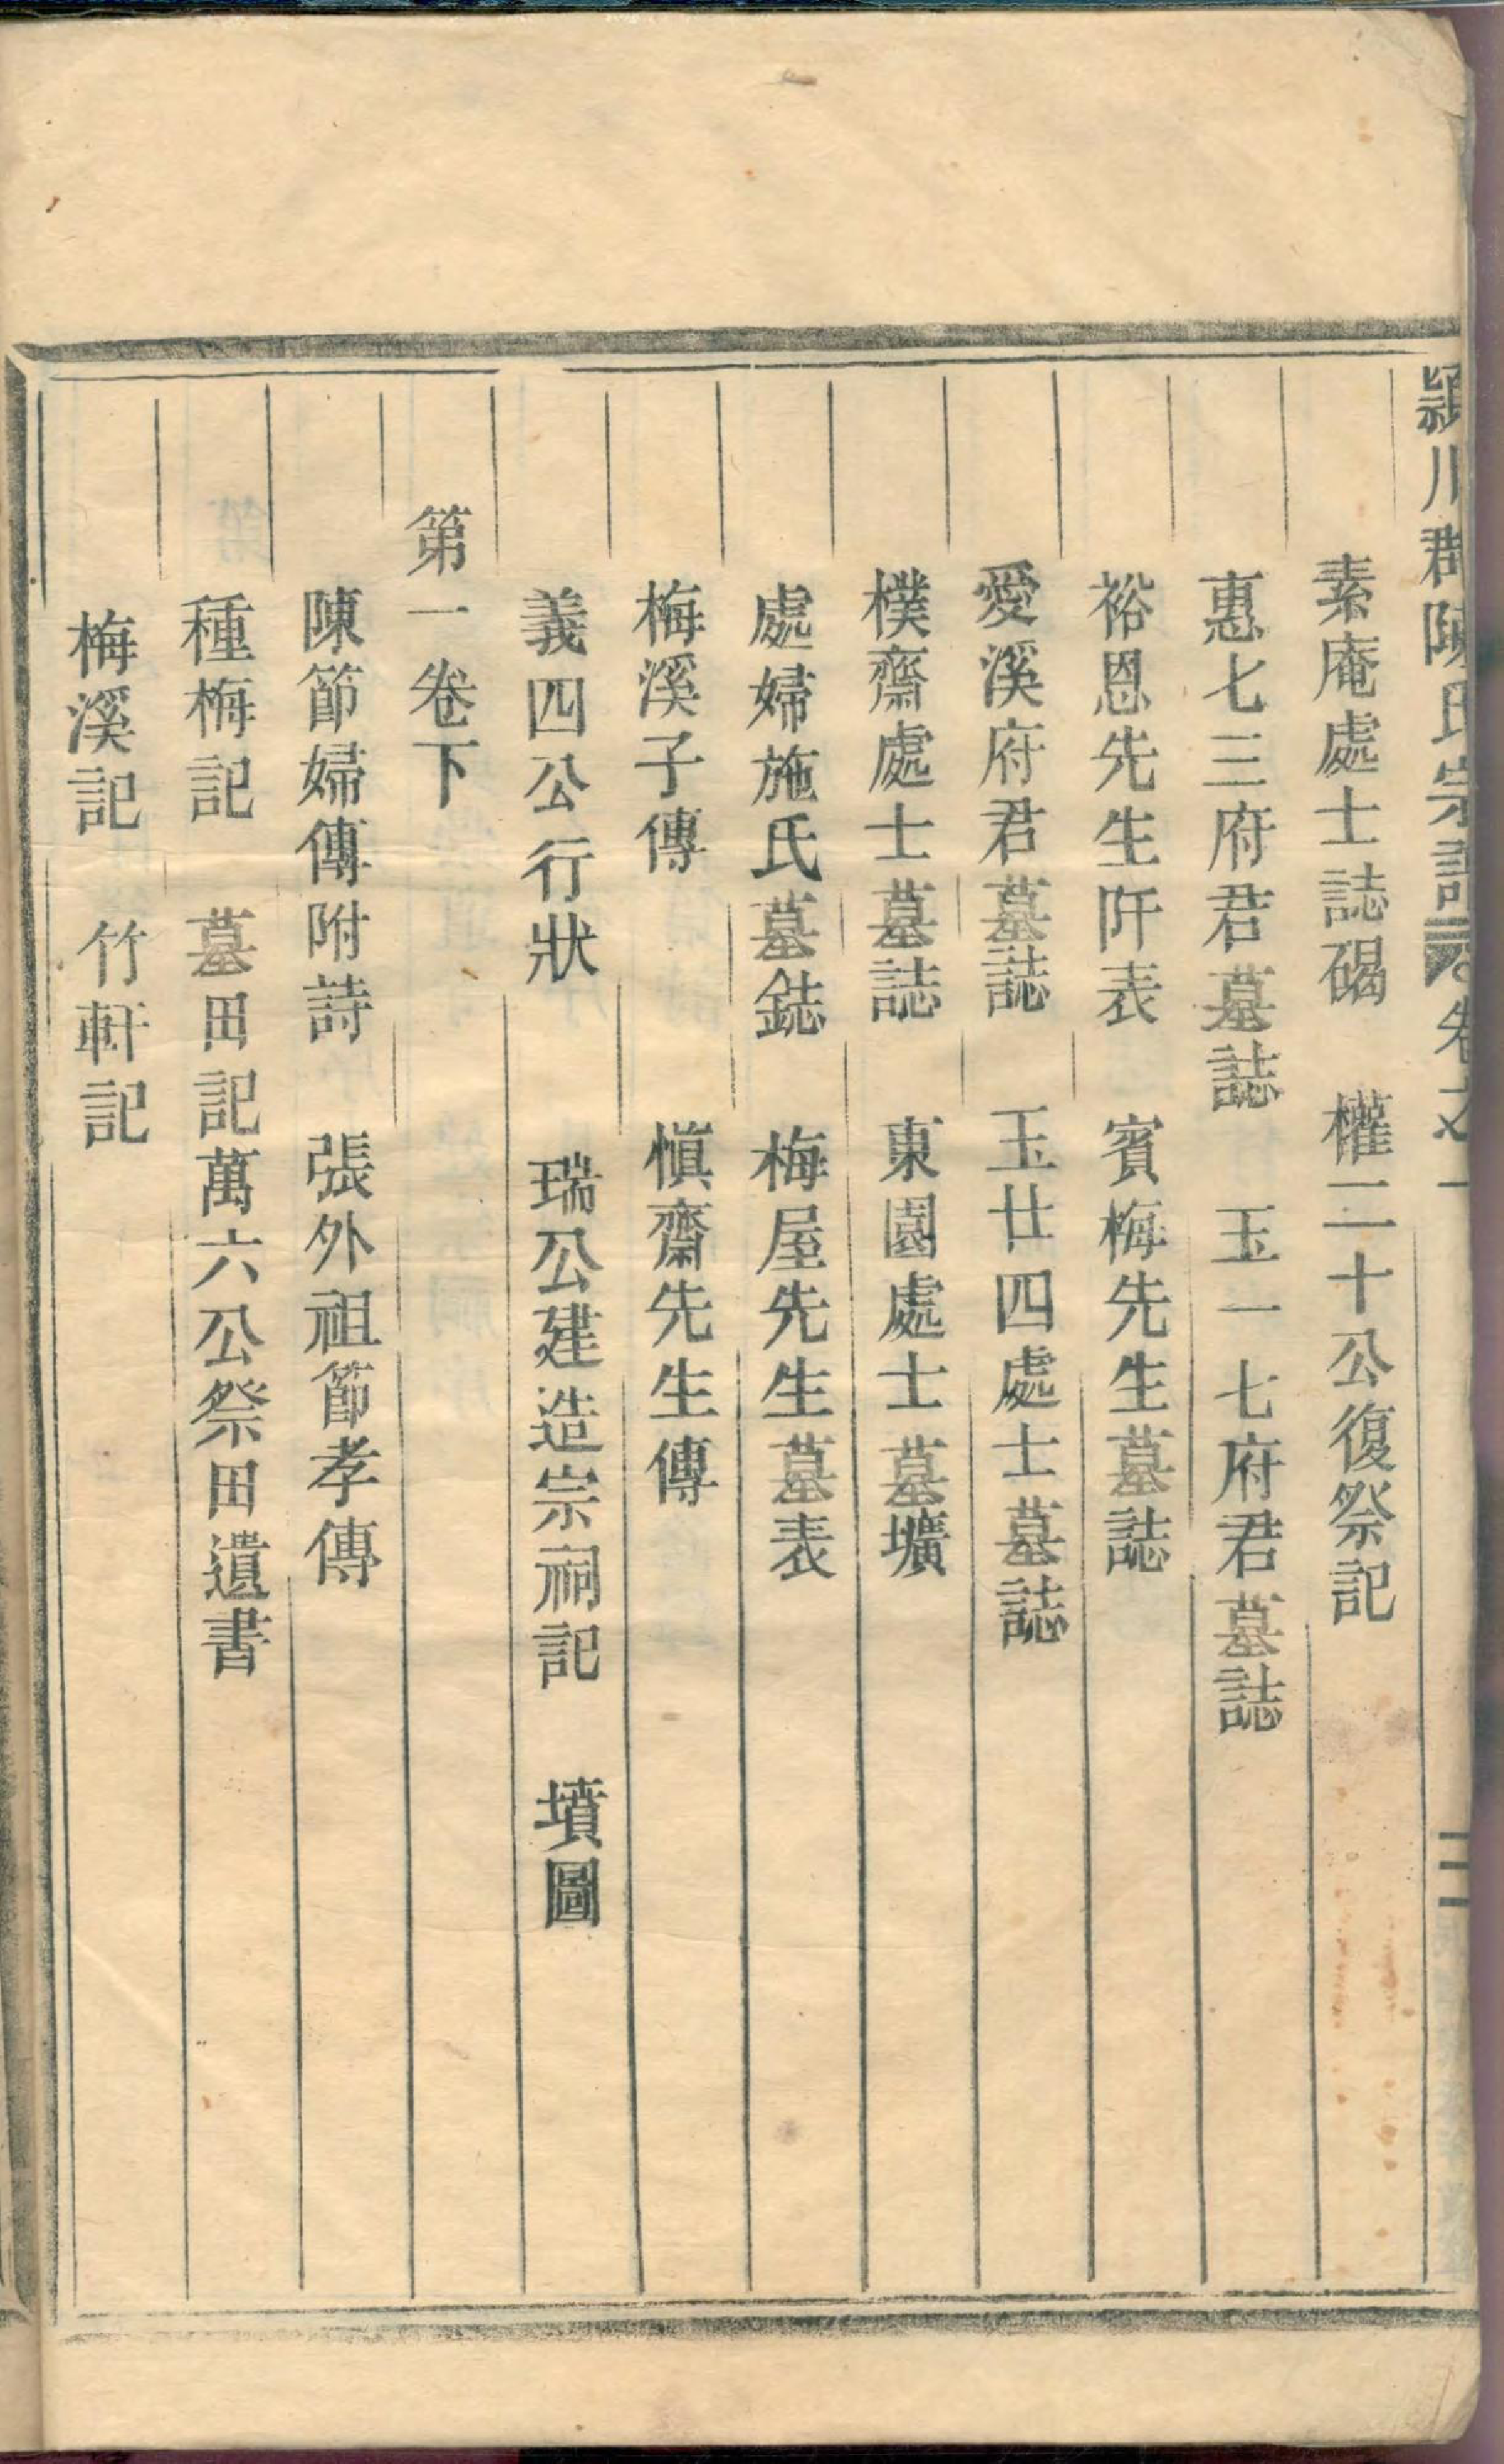 潁川郡陳氏宗譜 卷之一 二
素庵處士誌碣 權二十公復祭記
惠七三府君墓誌 玉一七府君墓誌
裕恩先生阡表 賓梅先生墓誌
愛溪府君墓誌 玉廿四處士墓誌
樸齋處士墓誌 東園處士墓壙
處婦施氏墓鋕 梅屋先生墓表
梅溪子傳 愼齋先生傳
義四公行狀 瑞公建造宗祠記 墳圖
第一卷下
陳節婦傳附詩 張外祖節孝傳
種梅記 墓田記萬六公祭田遺書
梅溪記 竹軒記